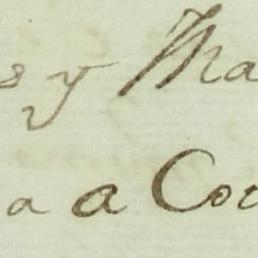 s y Ma
a a Coc